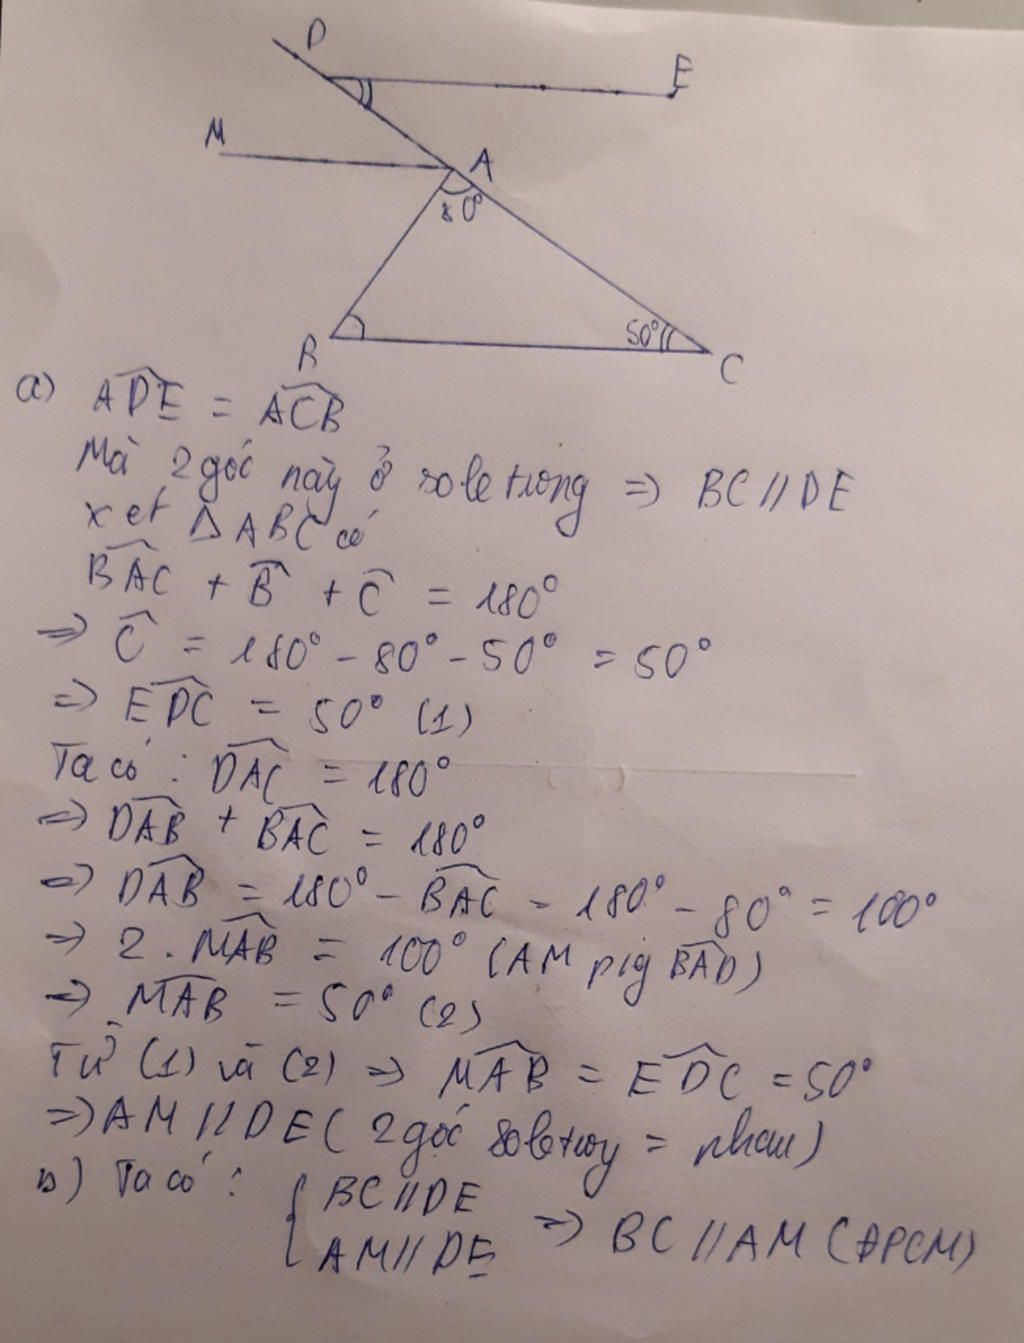 D
E
M
A
80°
50°
B
C
a) ADE = ACB
Mà 2 góc này ở so le trong => BC // DE
xet ΔABC có
BAC + B + C = 180°
=> C = 180° - 80° - 50° = 50°
=> EDC = 50° (1)
Ta có : DAC = 180°
=> DAB + BAC = 180°
=> DAB = 180° - BAC - 180° - 80° = 100°
=> 2 . MAB = 100° (AM pig BAD)
=> MAB = 50° (2)
Từ (1) và (2) => MAB = EDC = 50°
=> AM // DE ( 2 góc so le trog = nhau)
b) Ta có : { BC // DE
AM // DE => BC // AM (ĐPCM)